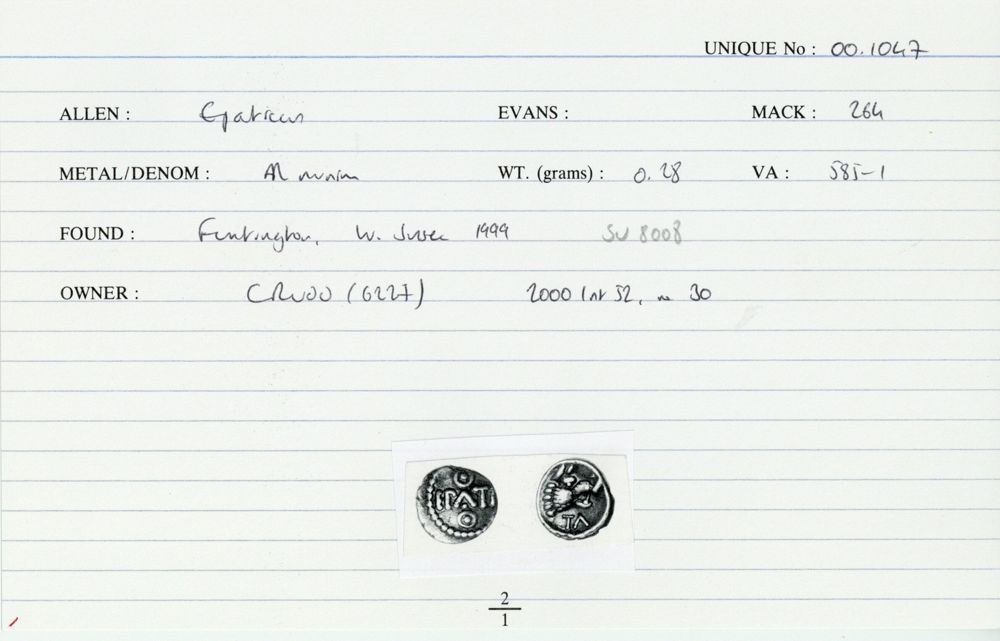 UNIQUE No : 00.1047
ALLEN : Epaticus EVANS : MACK : 264
METAL/DENOM : AR minim WT. (grams) : 0.28 VA : 585-1
FOUND : Funtington, W. Sussex 1999 SU 8008
OWNER : CR (6227) 2000 list 52, no 30
EPATI
TA
2
1